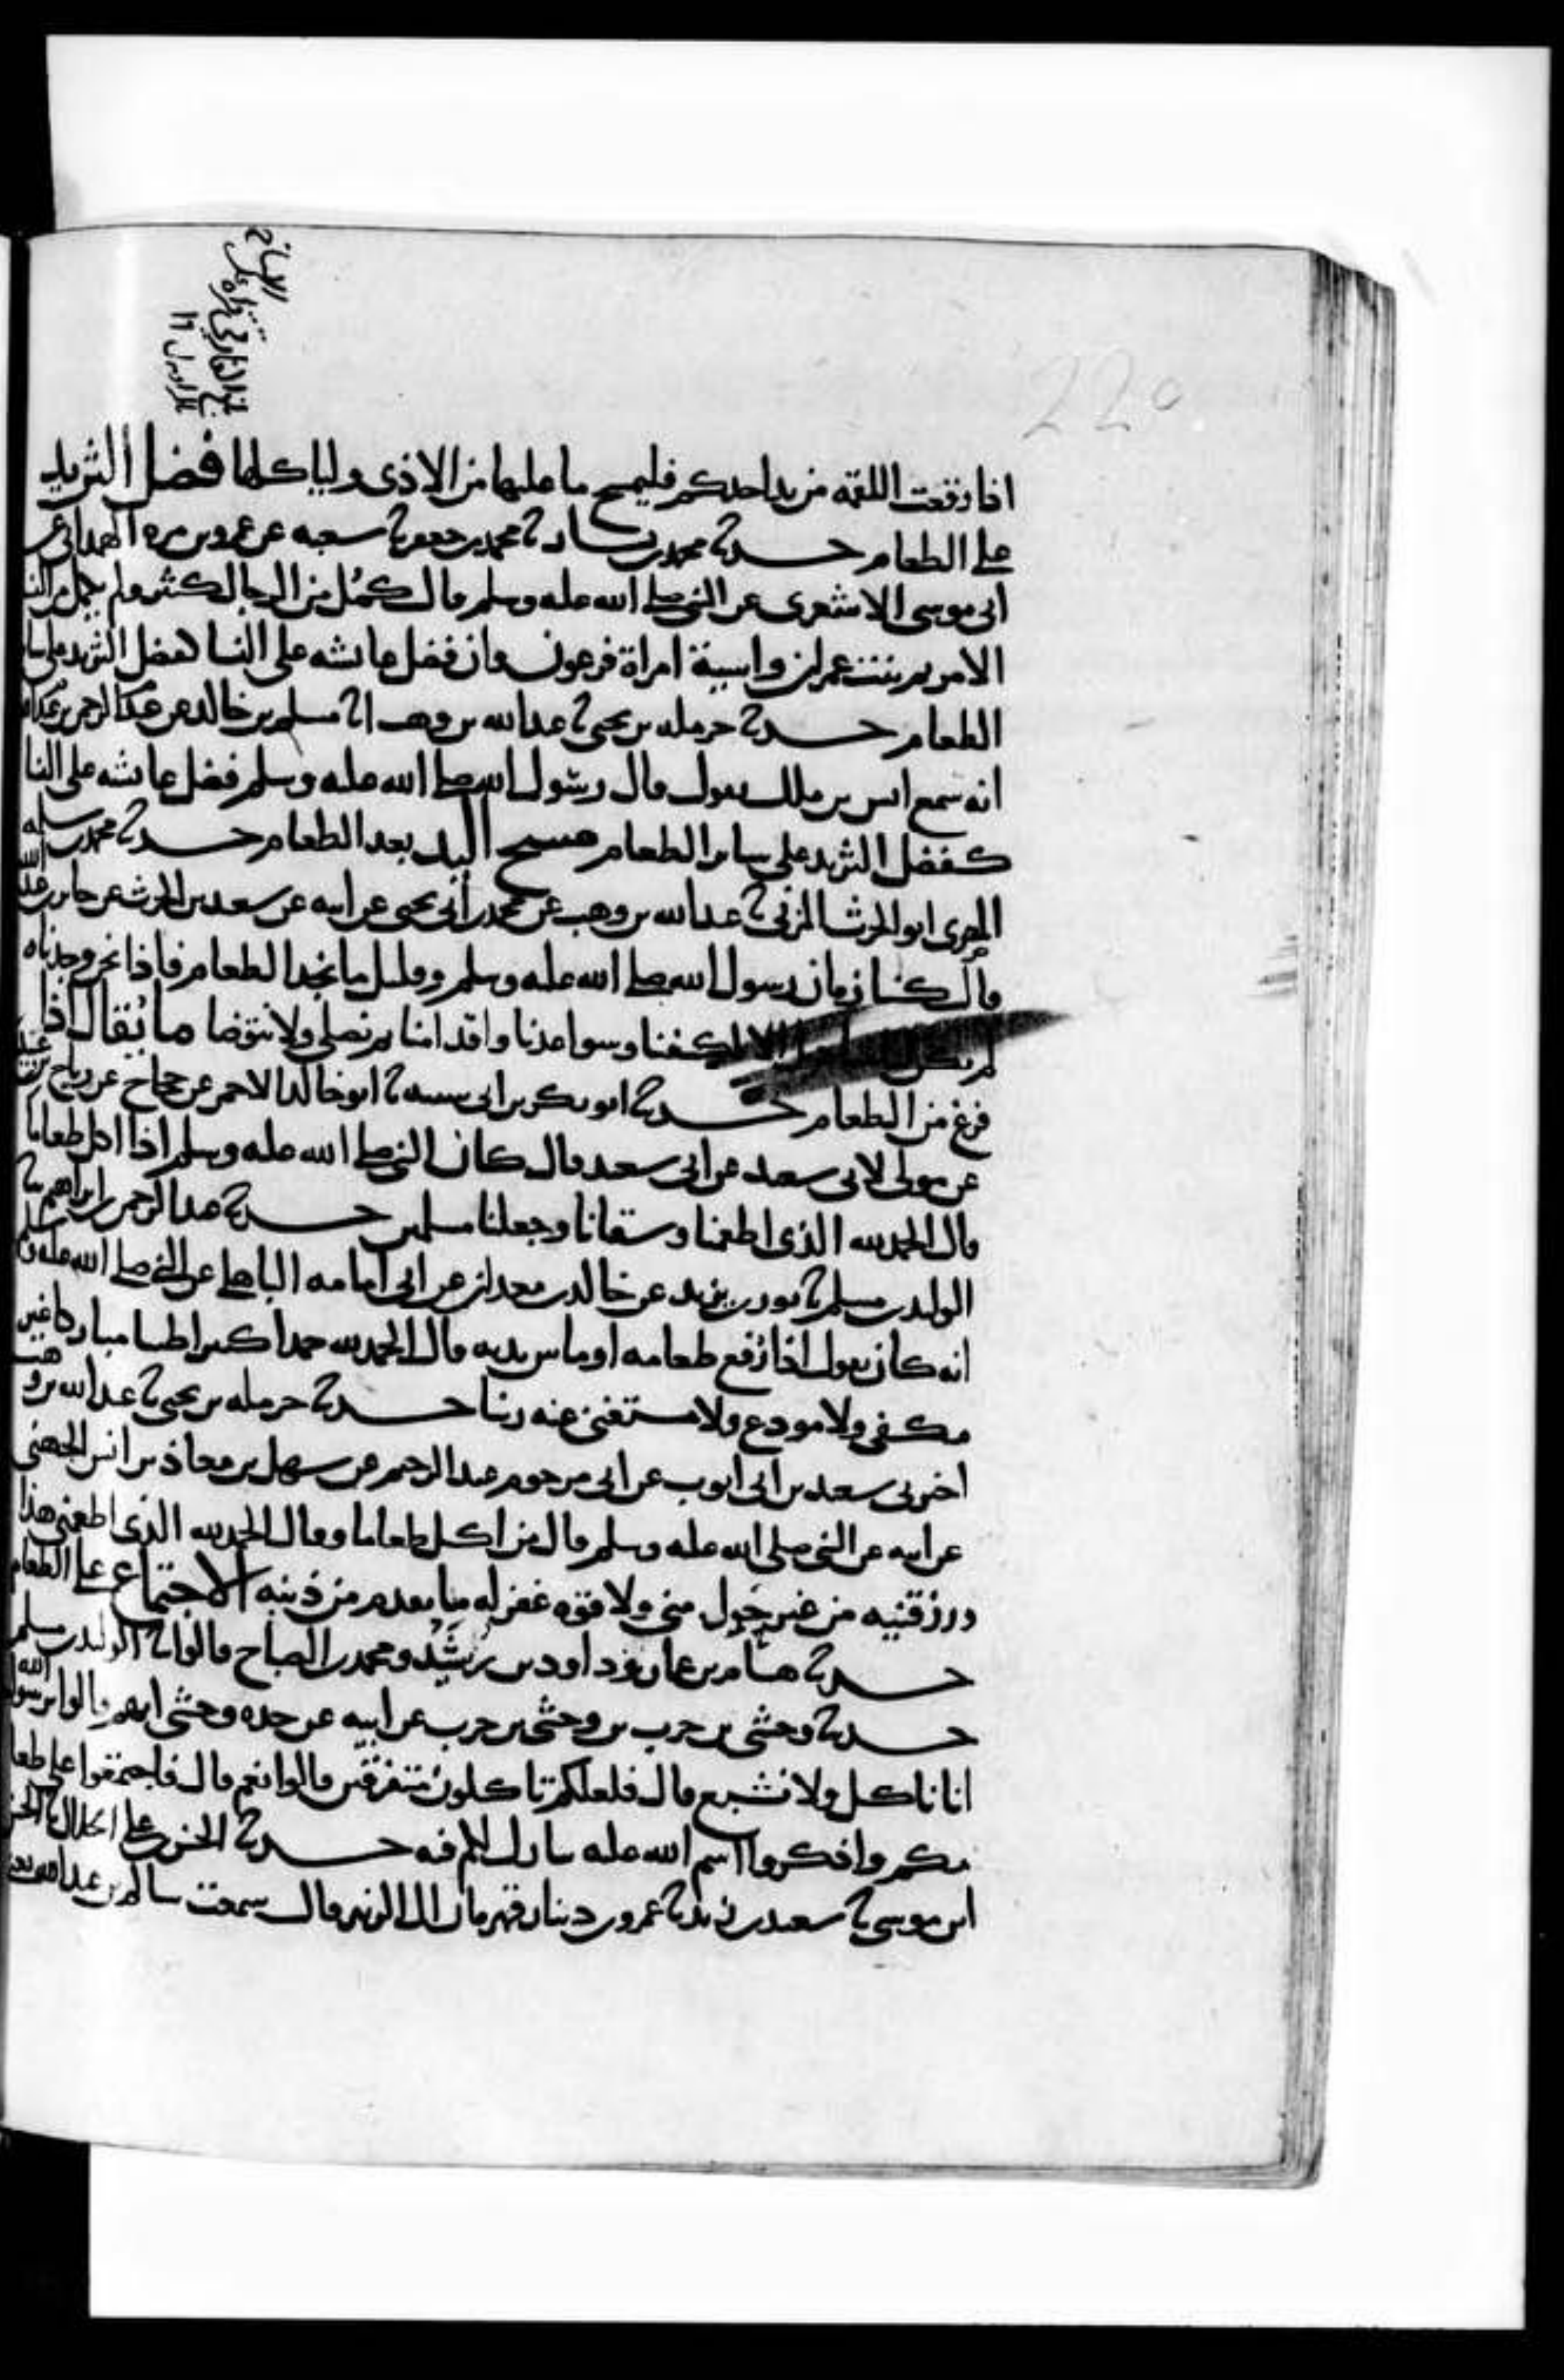 220
اذا وقعت اللقمه من يد احدكم فليمسح ما عليها من الاذى ولياكلها فضل الثريد
على الطعام حدثنا محمد بن بشار ثنا محمد بن جعفر ثنا شعبه عن عمرو بن مره الهمداني عن
ابي موسى الاشعرى عن النبي صلى الله عليه وسلم قال كمُل من الرجال كثير ولم يكمل من النسا
الا مريم بنت عمران واسية امراة فرعون وان فضل عايشه على النسا كفضل الثريد على ساير
الطعام حدثنا حرمله بن يحيى ثنا عبد الله بن وهب انا مسلم بن خالد عن عبد الرحمن بن عبد الله
انه سمع انس بن ملك يقول قال رسول الله صلى الله عليه وسلم فضل عايشه على النسا
كفضل الثريد على ساير الطعام مسح اليد بعد الطعام حدثنا محمد بن سلمه
المصرى ابو الحرث المرادي ثنا عبد الله بن وهب عن محمد بن ابي يحيى عن ابيه عن سعيد بن الحرث عن جابر بن عبد الله
قال كنا زمان رسول الله صلى الله عليه وسلم وقليل ما نجد الطعام فاذا نحن وجدناه
لم يكن لنا مناديل الا اكفنا وسواعدنا واقدامنا ثم نصلي ولا نتوضا ما يُقال اذا
فرغ من الطعام حدثنا ابو بكر بن ابي شيبه ثنا ابو خالد الاحمر عن حجاج عن رياح بن عبيده
عن مولى لابي سعيد عن ابي سعيد قال كان النبي صلى الله عليه وسلم اذا اكل طعاما
قال الحمد لله الذى اطعمنا وسقانا وجعلنا مسلمين حدثنا عبد الرحمن بن ابراهيم ثنا
الوليد بن مسلم ثنا ثور بن يزيد عن خالد بن معدان عن ابي امامه الباهلي عن النبي صلى الله عليه وسلم
انه كان يقول اذا رُفع طعامه او ما بين يديه قال الحمد لله حمدا كثيرا طيبا مباركا غير
مكفى ولا مودع ولا مستغنى عنه ربنا حدثنا حرمله بن يحيى ثنا عبد الله بن وهب
اخبرني سعيد بن ابي ايوب عن ابي مرحوم عبد الرحيم عن سهل بن معاذ بن انس الجهني
عن ابيه عن النبي صلى الله عليه وسلم قال من اكل طعاما وقال الحمد لله الذى اطعمني هذا
ورزقنيه من غير حَول مني ولا قوه غفر له ما تقدم من ذنبه الاجتماع على الطعام
حدثنا هشام بن عمار وداود بن رُشَيْد ومحمد بن الصباح قالوا ثنا الوليد بن مسلم
حدثنا وحشي بن حرب بن وحشي بن حرب عن ابيه عن جده وحشي انهم قالوا يرسول الله
انا ناكل ولا نشبع قال فلعلكم تاكلون متفرقين قالوا نعم قال فاجتمعوا على طعا
مكم واذكروا اسم الله عليه يبارك لكم فيه حدثنا الحسن بن علي الخلال ثنا الحسن
ابن موسى ثنا سعيد بن زيد ثنا عمرو بن دينار قهرمان ال الزبير قال سمعت سالم بن عبد الله يقول